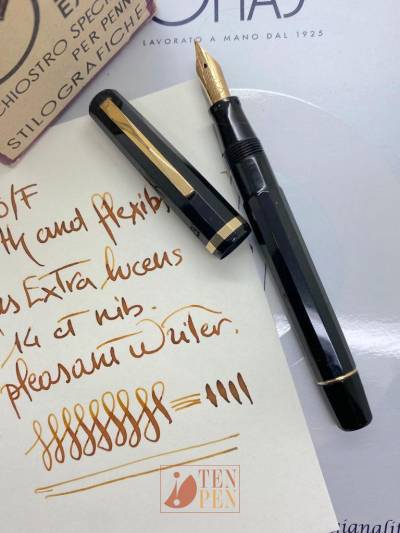 OMAS
LAVORATO A MANO DAL 1925
CHIOSTRO SPECI
PER PENN
STILOGRAFICHE
O/F
th and flexib
as Extra lucens
14 ct nib.
pleasant writer.
TEN
PEN